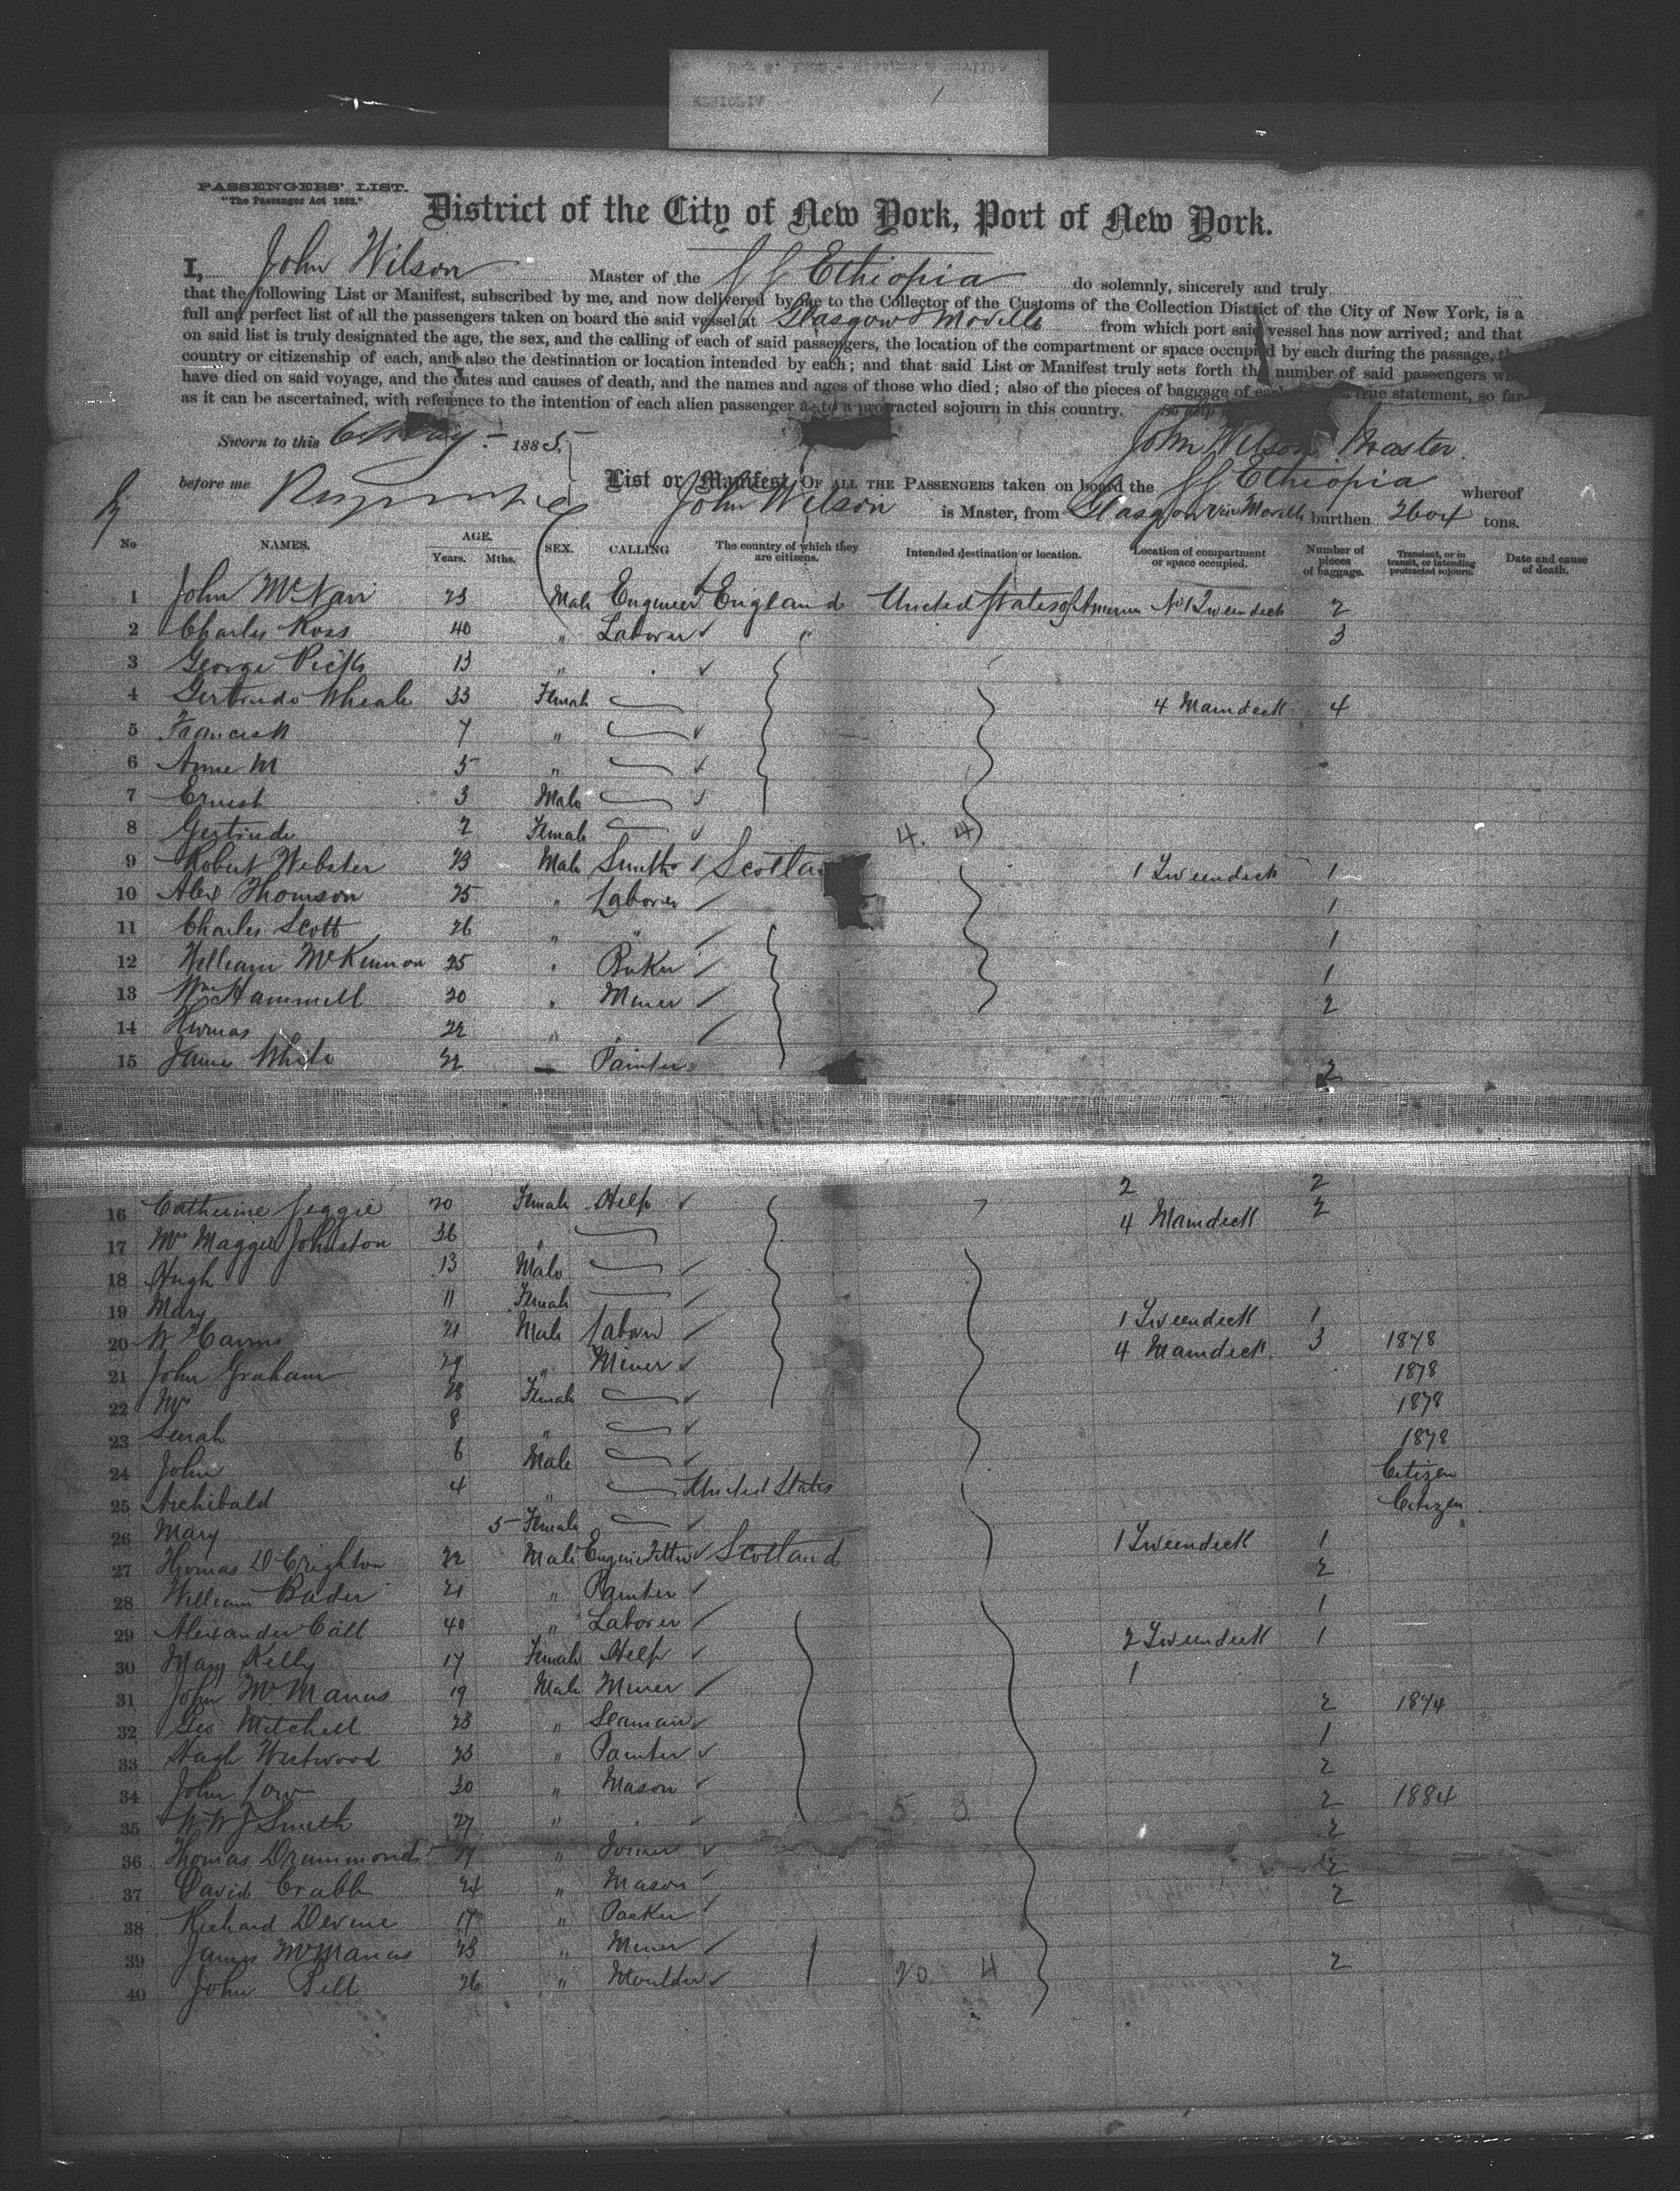 PASSENGERS' LIST.
"The Passenger Act 1882."
District of the City of New York, Port of New York.
I, John Wilson Master of the SS Ethiopia do solemnly, sincerely and truly
that the following List or Manifest, subscribed by me, and now delivered by me to the Collector of the Customs of the Collection District of the City of New York, is a
full and perfect list of all the passengers taken on board the said vessel at Glasgow & Moville from which port said vessel has now arrived; and that
on said list is truly designated the age, the sex, and the calling of each of said passengers, the location of the compartment or space occupied by each during the passage, the
country or citizenship of each, and also the destination or location intended by each; and that said List or Manifest truly sets forth the number of said passengers who
have died on said voyage, and the dates and causes of death, and the names and ages of those who died; also of the pieces of baggage of each true statement, so far
as it can be ascertained, with reference to the intention of each alien passenger as to a protracted sojourn in this country.
Sworn to this 6 May 1885 John Wilson Master.
before me List or Manifest OF ALL THE PASSENGERS taken on board the SS Ethiopia whereof
John Wilson is Master, from Glasgow via Moville burthen 2604 tons.
No NAMES. AGE. Years. Mths. SEX. CALLING The country of which they are citizens. Intended destination or location. Location of compartment or space occupied. Number of pieces of baggage. Transient, or in transit, or intending protracted sojourn. Date and cause of death.
1 John McNair 23 Male Engineer England United States of America No 1 Tweendeck 2
2 Charles Ross 40 " Laborer " 3
3 George 13 "
4 Gertrude Wheale 33 Female 4 Maindeck 4
5 7 "
6 Anne M 5 "
7 Ernest 3 Male
8 Gertrude 2 Female 4. 4
9 Robert Webster 23 Male Smith Scotla 1 Tweendeck 1
10 Alex Thomson 25 " Laborer 1
11 Charles Scott 26 " " 1
12 William McKinnon 25 " Baker 1
13 Wm Hammill 20 " Miner 2
14 22 " "
15 James White 22 Painter 2
2 2
16 Catherine Jeggie 20 Female Help 2
17 Mrs Maggie Johnston 36 " 4 Maindeck
18 Hugh 13 Male
19 Mary 11 Female
20 W Cairns 21 Male Laborer 1 Tweendeck 1
21 John Graham 29 " Miner 4 Maindeck 3 1878
22 Mrs 28 Female 1878
23 8 " 1878
24 John 6 Male 1878
25 Archibald 4 " United States Citizen
26 Mary 5 Female Citizen
27 Thomas D Crighton 22 Male Engine Fitter Scotland 1 Tweendeck 1
28 William 21 " Painter 2
29 Alexander Call 40 " Laborer 1
30 Mary Kelly 17 Female Help 2 Tweendeck 1
31 John McManus 19 Male Miner 1
32 Geo Mitchell 23 " Seaman 2 1874
33 Hugh Westwood 23 " Painter 1
34 John 30 " Mason 2
35 W W J Smith 27 " 5 3 2 1884
36 Thomas Drummond " Joiner 2
37 David Crabb 24 " Mason 2
38 Richard Devine 17 " Packer 2
39 James McManus 23 " Miner
40 John Bell 26 " Moulder 20 4 2